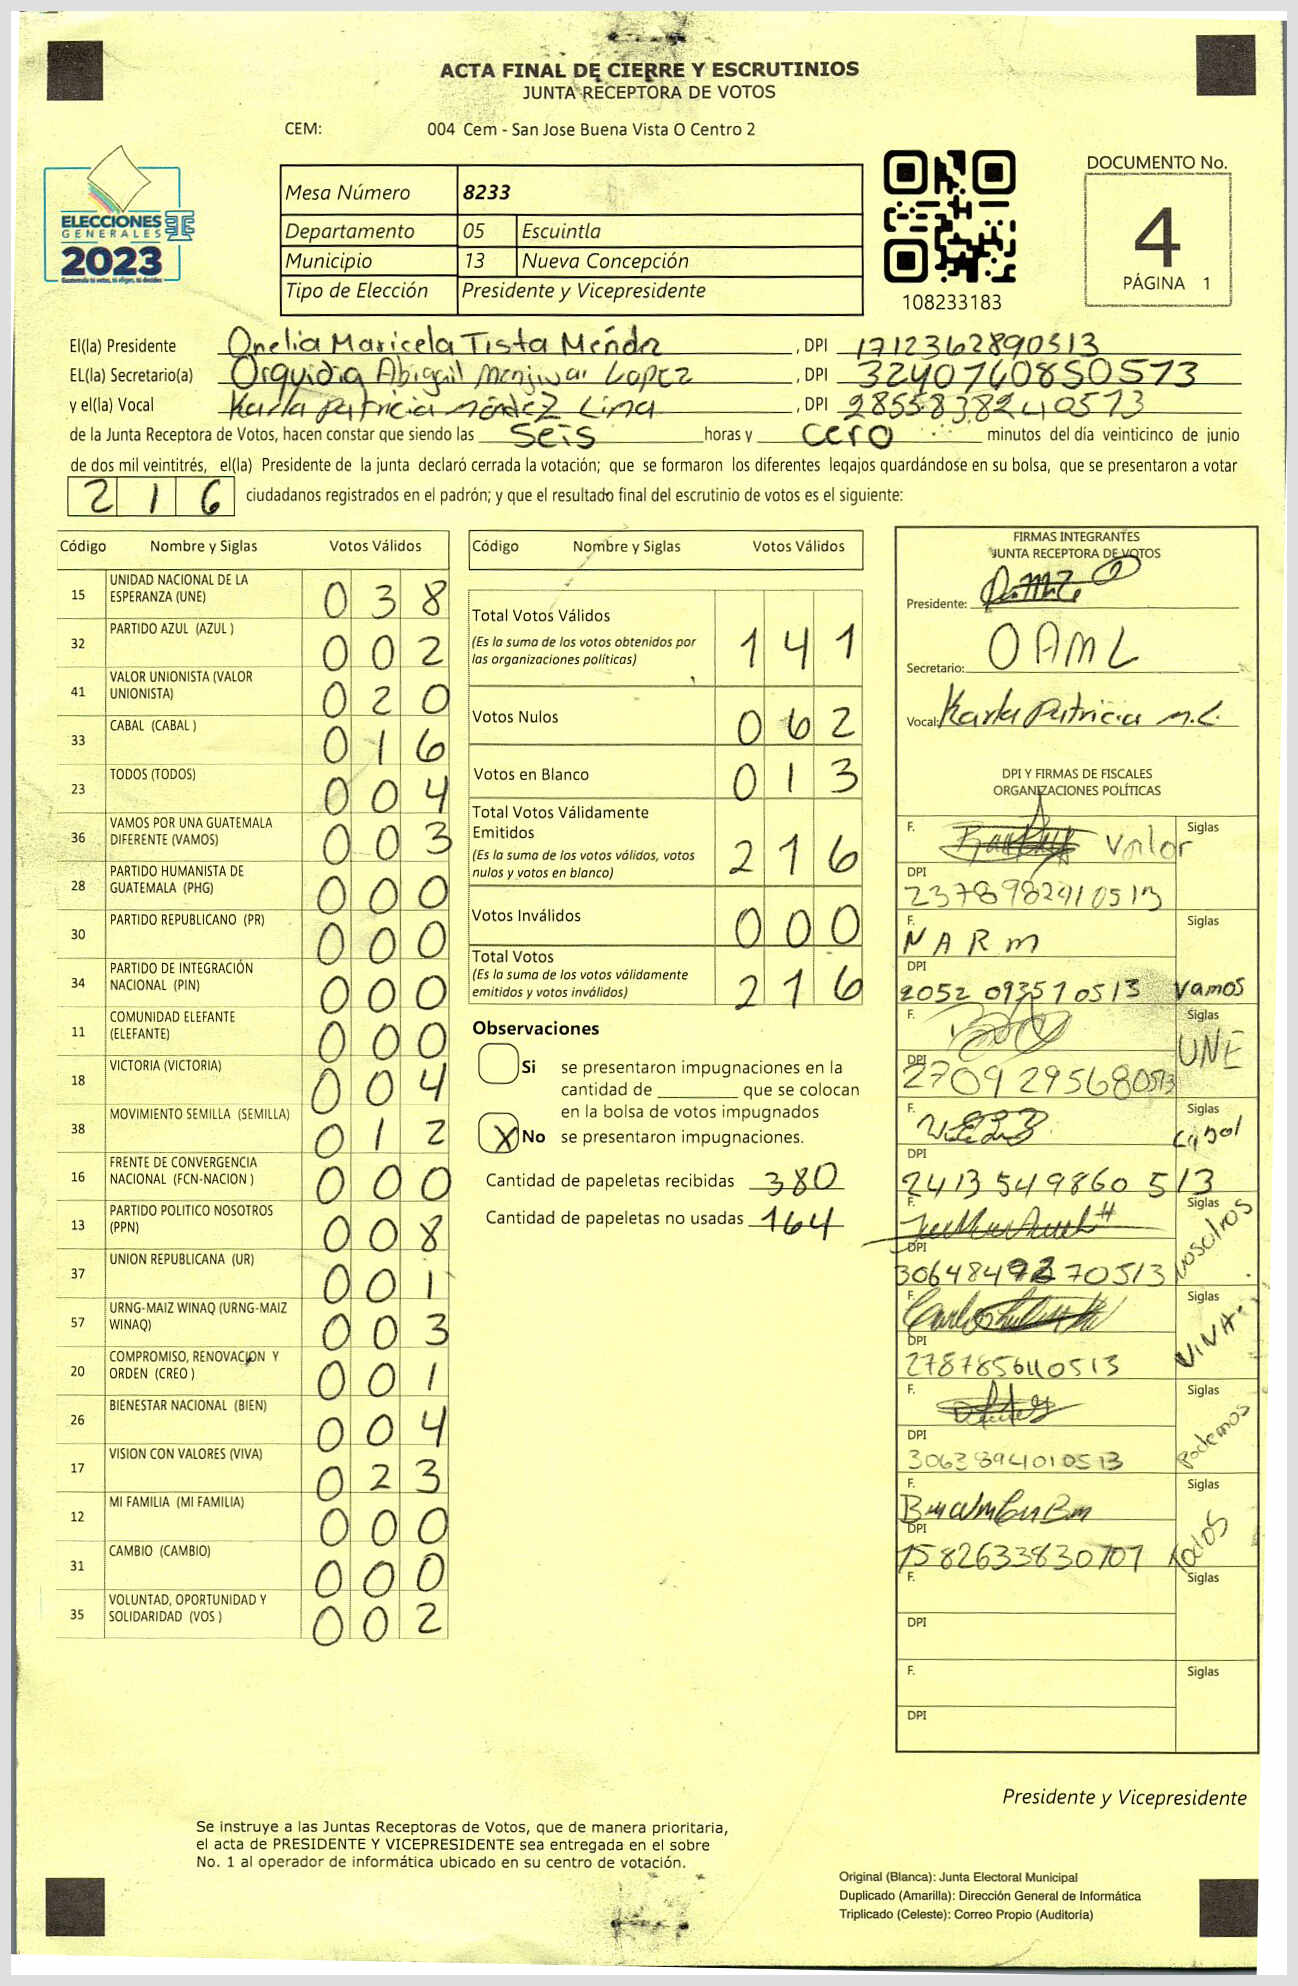 ACTA FINAL DE CIERRE Y ESCRUTINIOS
JUNTA RECEPTORA DE VOTOS
CEM: 004 Cem - San Jose Buena Vista O Centro 2
ELECCIONES
GENERALES
2023
Mesa Número 8233
Departamento 05 Escuintla
Municipio 13 Nueva Concepción
Tipo de Elección Presidente y Vicepresidente
108233183
DOCUMENTO No.
4
PÁGINA 1
El(la) Presidente Onelia Maricela Tista Méndz , DPI 1712362890513
EL(la) Secretario(a) Orquidia Abigail Menjivar Lopez , DPI 3240760850513
y el(la) Vocal Karla Patricia Méndez Lima , DPI 2855838240513
de la Junta Receptora de Votos, hacen constar que siendo las seis horas y cero minutos del día veinticinco de junio
de dos mil veintitrés, el(la) Presidente de la junta declaró cerrada la votación; que se formaron los diferentes legajos guardándose en su bolsa, que se presentaron a votar
216 ciudadanos registrados en el padrón; y que el resultado final del escrutinio de votos es el siguiente:
Código Nombre y Siglas Votos Válidos
15 UNIDAD NACIONAL DE LA ESPERANZA (UNE) 038
32 PARTIDO AZUL (AZUL ) 002
41 VALOR UNIONISTA (VALOR UNIONISTA) 020
33 CABAL (CABAL ) 016
23 TODOS (TODOS) 004
36 VAMOS POR UNA GUATEMALA DIFERENTE (VAMOS) 003
28 PARTIDO HUMANISTA DE GUATEMALA (PHG) 000
30 PARTIDO REPUBLICANO (PR) 000
34 PARTIDO DE INTEGRACIÓN NACIONAL (PIN) 000
11 COMUNIDAD ELEFANTE (ELEFANTE) 000
18 VICTORIA (VICTORIA) 004
38 MOVIMIENTO SEMILLA (SEMILLA) 012
16 FRENTE DE CONVERGENCIA NACIONAL (FCN-NACION ) 000
13 PARTIDO POLITICO NOSOTROS (PPN) 008
37 UNION REPUBLICANA (UR) 001
57 URNG-MAIZ WINAQ (URNG-MAIZ WINAQ) 003
20 COMPROMISO, RENOVACION Y ORDEN (CREO ) 001
26 BIENESTAR NACIONAL (BIEN) 004
17 VISION CON VALORES (VIVA) 023
12 MI FAMILIA (MI FAMILIA) 000
31 CAMBIO (CAMBIO) 000
35 VOLUNTAD, OPORTUNIDAD Y SOLIDARIDAD (VOS ) 002
Código Nombre y Siglas Votos Válidos
Total Votos Válidos 141
(Es la suma de los votos obtenidos por
las organizaciones políticas)
Votos Nulos 062
Votos en Blanco 013
Total Votos Válidamente
Emitidos 216
(Es la suma de los votos válidos, votos
nulos y votos en blanco)
Votos Inválidos 000
Total Votos 216
(Es la suma de los votos válidamente
emitidos y votos inválidos)
Observaciones
Si se presentaron impugnaciones en la
cantidad de ________ que se colocan
en la bolsa de votos impugnados
X No se presentaron impugnaciones.
Cantidad de papeletas recibidas 380
Cantidad de papeletas no usadas 164
FIRMAS INTEGRANTES
JUNTA RECEPTORA DE VOTOS
Presidente:
Secretario: OAML
Vocal: Karla Patricia M.L.
DPI Y FIRMAS DE FISCALES
ORGANIZACIONES POLÍTICAS
F. Valor Siglas
DPI
2378982910513
F. NARM Siglas
DPI
2052 093570513 Vamos
F. Siglas
UNE
DPI
2709 295680513
F. Siglas
Cabal
DPI
2413 549860 513
F. Siglas
Nosotros
DPI
F. Siglas
VIVA
DPI
F. Siglas
Podemos
DPI
3063894010513
F. Siglas
Todos
DPI
1582633830707
F. Siglas
DPI
F. Siglas
DPI
Presidente y Vicepresidente
Se instruye a las Juntas Receptoras de Votos, que de manera prioritaria,
el acta de PRESIDENTE Y VICEPRESIDENTE sea entregada en el sobre
No. 1 al operador de informática ubicado en su centro de votación.
Original (Blanca): Junta Electoral Municipal
Duplicado (Amarilla): Dirección General de Informática
Triplicado (Celeste): Correo Propio (Auditoría)